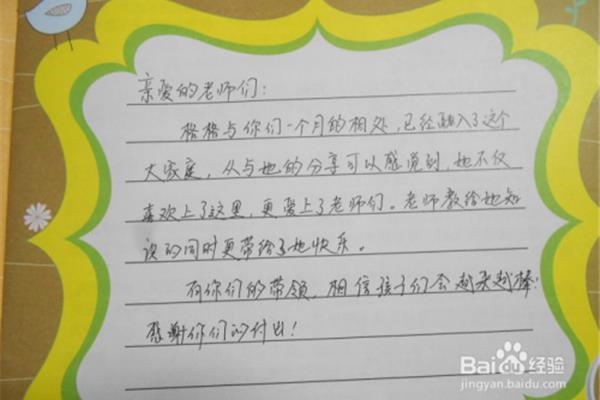 亲爱的老师们：
格格与你们一个月的相处，已经融入了这个
大家庭，从与她的分享可以感觉到，她不仅
喜欢上了这里，更爱上了老师们。老师教给她知
识的同时更带给了她快乐。
有你们的带领，相信孩子们会越来越棒！
感谢你们的付出！
Baidu经验
jingyan.baidu.com